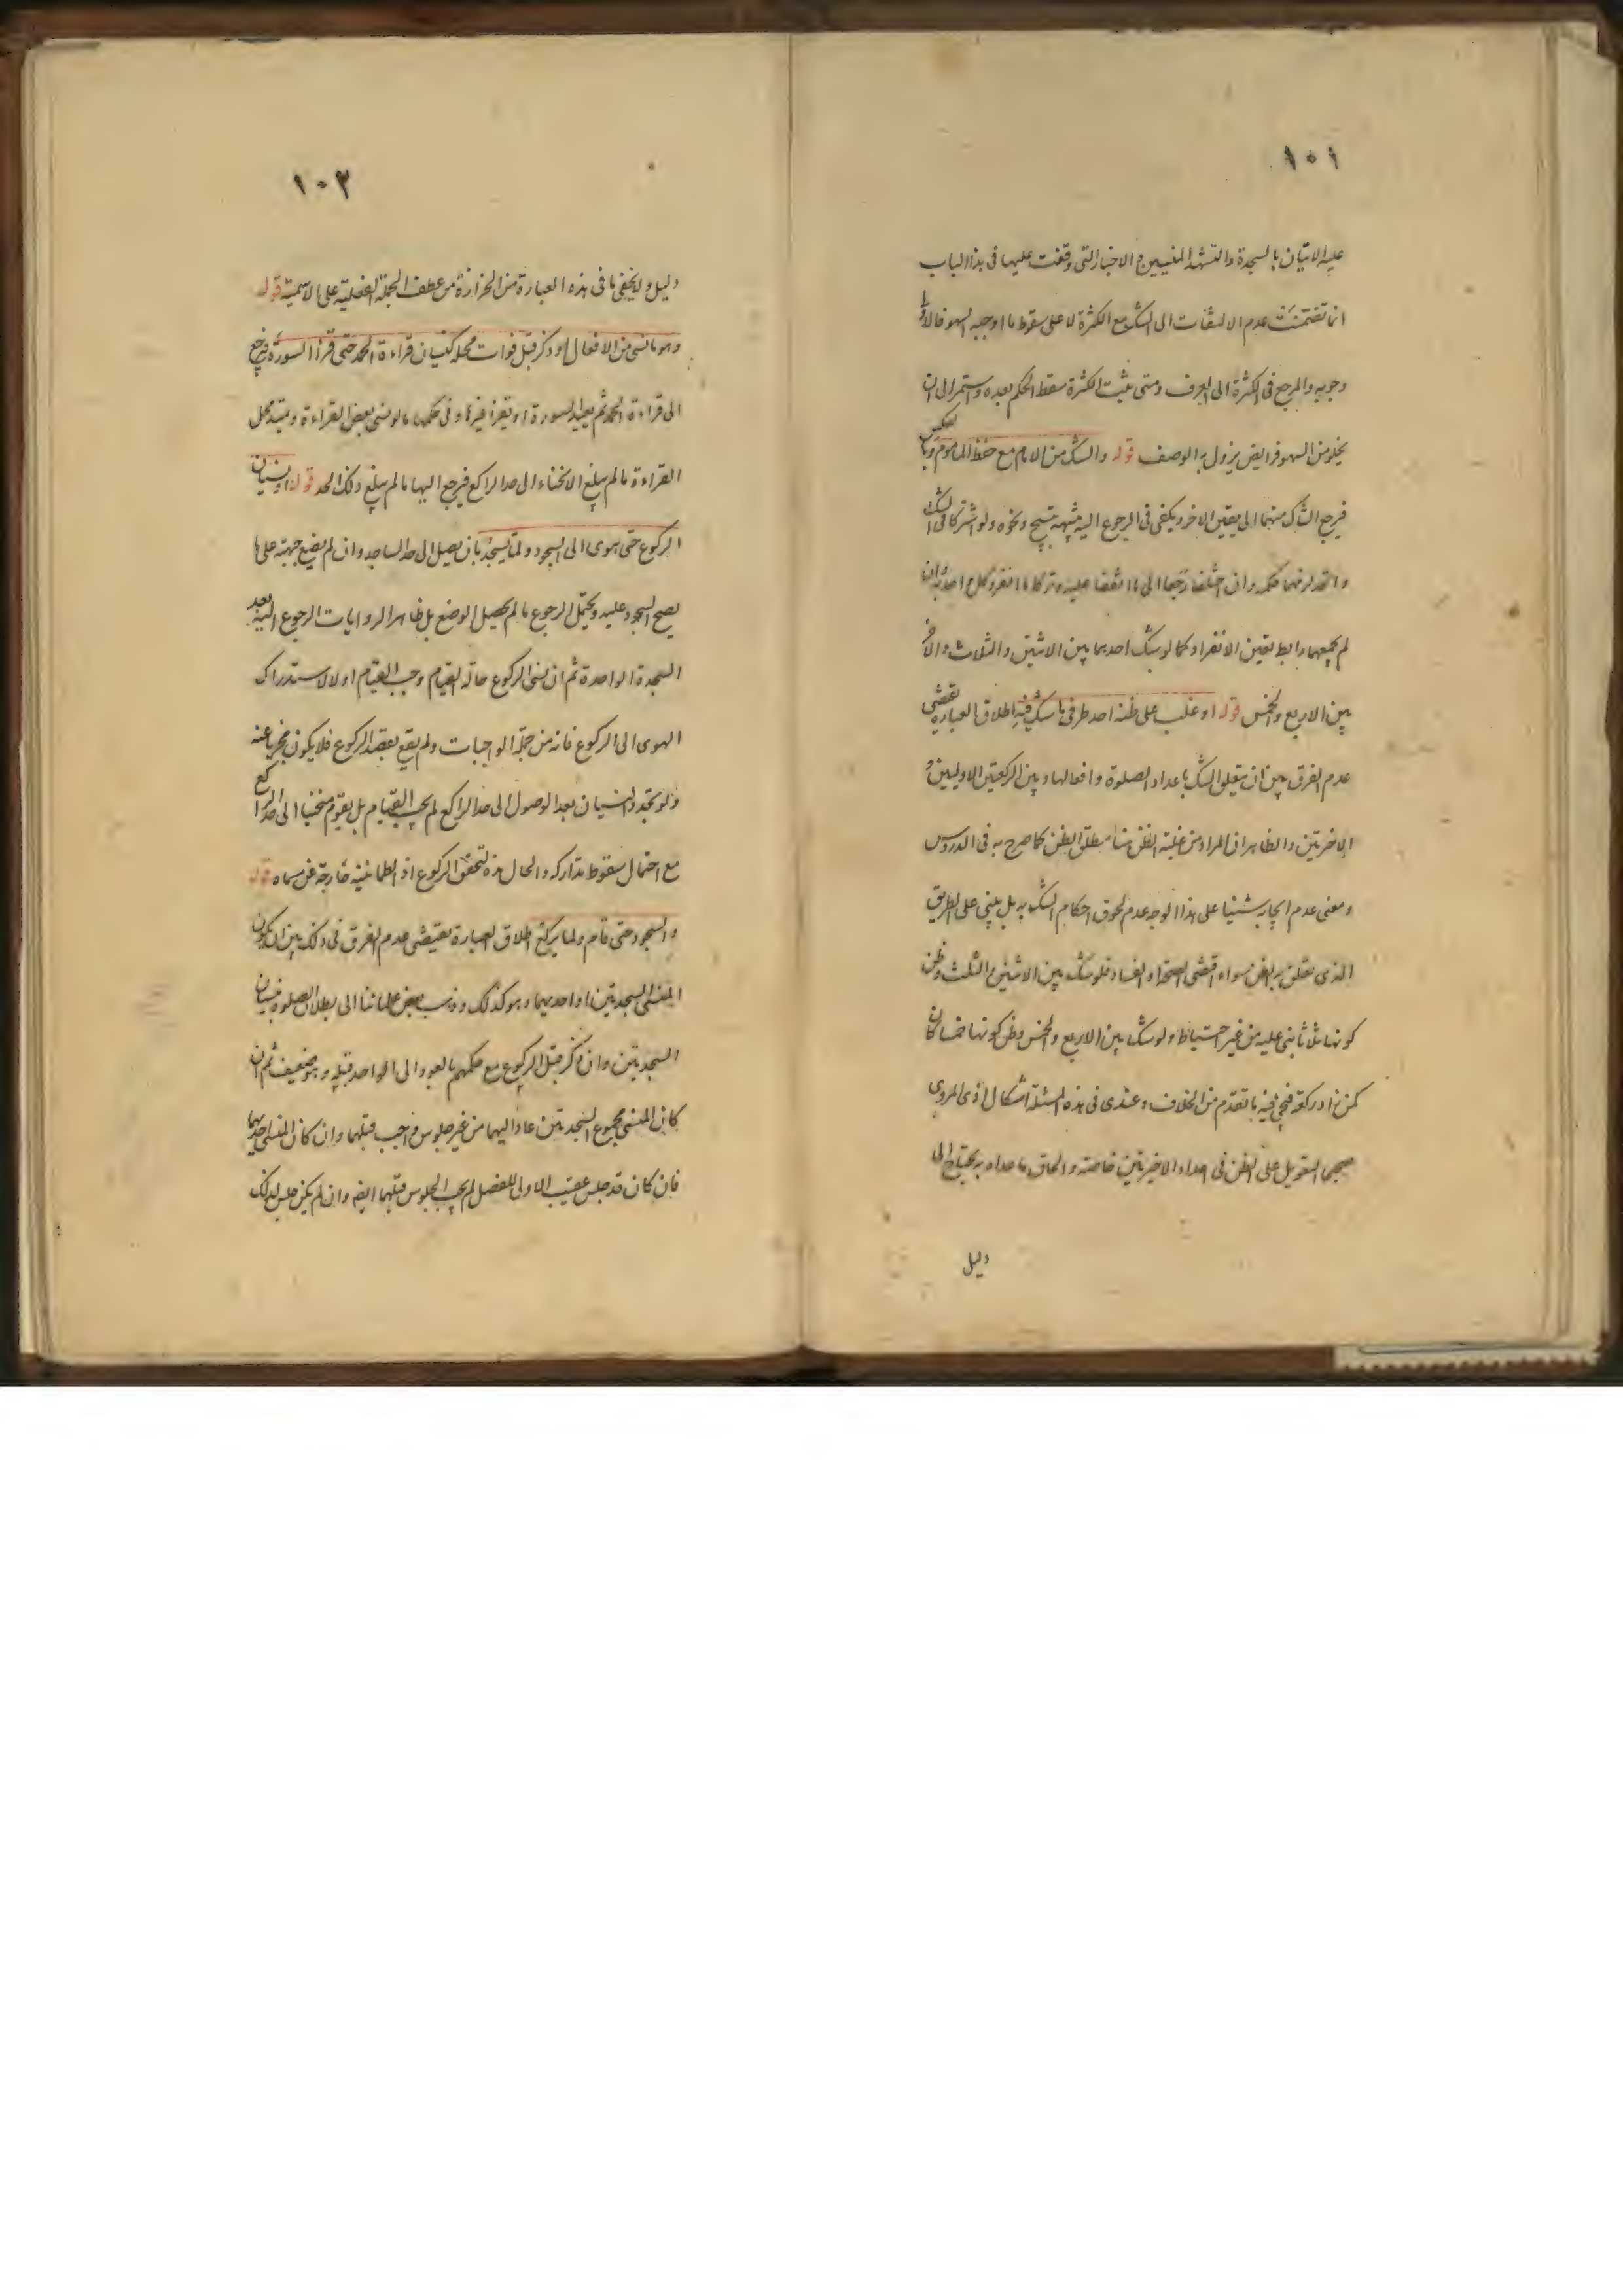 ١٠١
عليه الاتيان بالسجدة والتشهد المنسيين و الاخبار التى وقفت عليها فى هذا الباب
انما تضمنت عدم الالتفات الى الشك مع الكثرة لا على سقوط ما اوجبه السهو فالاولى
وجوبه والمرجع فى الكثرة الى العرف ومتى يثبت الكثرة سقط الحكم بعده ويستمر الى ان
يخلو من السهو فرايض يزول به الوصف قوله والشك من الامام مع حفظ الماموم وبالعكس
فيرجع الشاك منهما الى يقين الاخر ويكفى فى الرجوع اليه تنبيهه بتسبيح ونحوه ولو اشتركا فى الشك
واتحد لزمهما حكمه وان اختلفا رجعا الى ما اتفقا عليه وتركا ما انفرد كل احدهما به فان
لم يجمعهما رابط تعين الانفراد كما لو شك احدهما بين الاثنتين والثلاث والاخر
بين الاربع والخمس قوله او غلب على ظنه احد طرفى ما شك فيه اطلاق العبارة يقتضى
عدم الفرق بين ان يتعلق الشك باعداد الصلوة وافعالها وبين الركعتين الاوليين و
الاخرتين والظاهر ان المراد من غلبة الظن هنا مطلق الظن كما صرح به فى الدروس
ومعنى عدم ايجابه شيئا على هذا الوجه عدم لحوق احكام الشك به بل يبنى على الطريق
الذى تعلق به الظن سواء اقتضى الصحة او الفساد فلو شك بين الاثنين و الثلث وظن
كونها ثلاثا بنى عليه من غير احتياط ولو شك بين الاربع والخمس وظن كونها خمسا كان
كمن زاد ركعة فيجئ فيه ما تقدم من الخلاف وعندى فى هذه المسئلة اشكال اذ المروى
صحيحا التعويل على الظن فى اعداد الاخيرتين خاصة والحاق ما عداه به يحتاج الى
دليل
١٠٢
دليل ولا يخفى ما فى هذه العبارة من الحزازة من عطف الجملة الفعلية على الاسمية قوله
وهو ما نسى من الافعال و ذكر قبل فوات محله كنسيان قراءة الحمد حتى قرأ السورة فيرجع
الى قراءة الحمد ثم يعيد السورة او يقرأ غيرها وفى حكمها ما لو نسى بعض القراءة ويمتد محل
القراءة ما لم يبلغ الانحناء الى حد الراكع فيرجع اليها ما لم يبلغ ذلك الحد قوله او نسيان
الركوع حتى هوى الى السجود ولما يسجد بان يصل الى حد الساجد وان لم يضع جبهته على ما
يصح السجود عليه ويحتمل الرجوع ما لم يحصل الوضع بل ظاهر الروايات الرجوع اليه بعد
السجدة الواحدة ثم ان نسى الركوع حالة القيام وجب القيام اولا لاستدراك
الهوى الى الركوع فانه من جملة الواجبات ولم يقع بقصد الركوع فلا يكون مجزيا عنه
ولو تجدد النسيان بعد الوصول الى حد الراكع لم يجب القيام بل يقوم منحنيا الى حد الراكع
مع احتمال سقوط تداركه والحال هذه لتحقق الركوع اذ الطمانينة خارجة عن مسماه قوله
والسجود حتى قام ولما يركع اطلاق العبارة يقتضى عدم الفرق فى ذلك بين ان يكون
المنسى السجدتين او احديهما وهو كذلك وذهب بعض علمائنا الى بطلان الصلوة بنسيان
السجدتين وان ذكر قبل الركوع مع حكمهم بالعود الى الواحد قبله وهو ضعيف ثم ان
كان المنسى مجموع السجدتين عاد اليهما من غير جلوس واجب قبلهما وان كان المنسى احديهما
فان كان قد جلس عقيب الاولى للفصل لم يجب الجلوس قبلهما ايضا وان لم يكن جلس لذلك